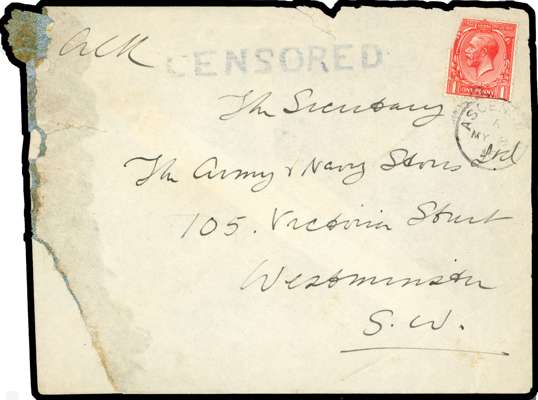 CENSORED
ONE PENNY
The Secretary
The Army & Navy Stores Ltd
105. Victoria Street
Westminster
S. W.